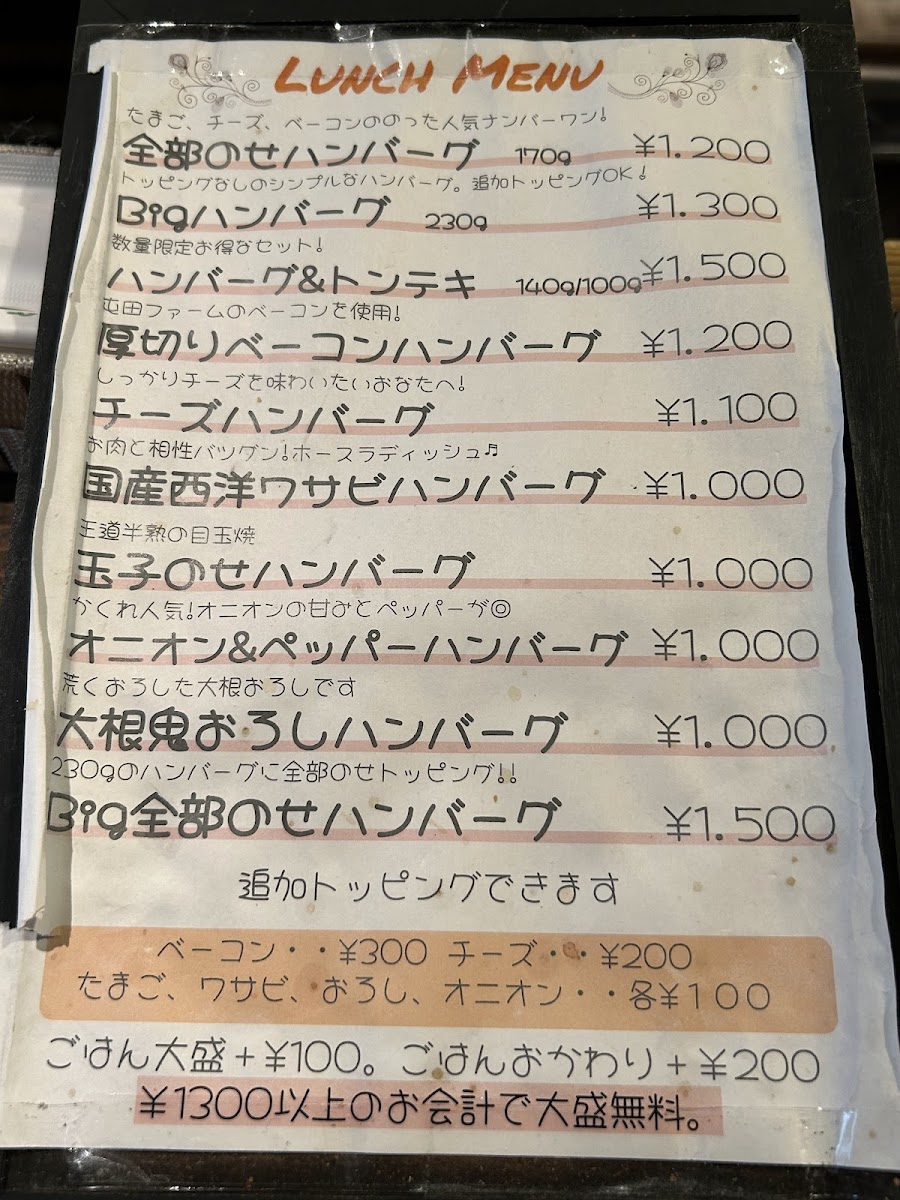 LUNCH MENU
たまご、チーズ、ベーコンののった人気ナンバーワン!
全部のせハンバーグ 170g ¥1.200
トッピングなしのシンプルなハンバーグ。追加トッピングOK!
Bigハンバーグ 230g ¥1.300
数量限定お得なセット!
ハンバーグ&トンテキ 140g/100g ¥1.500
屯田ファームのベーコンを使用!
厚切りベーコンハンバーグ ¥1.200
しっかりチーズを味わいたいあなたへ!
チーズハンバーグ ¥1.100
お肉と相性バツグン!ホースラディッシュ♬
国産西洋ワサビハンバーグ ¥1.000
王道半熟の目玉焼
玉子のせハンバーグ ¥1.000
かくれ人気!オニオンの甘みとペッパーが◎
オニオン&ペッパーハンバーグ ¥1.000
荒くおろした大根おろしです
大根鬼おろしハンバーグ ¥1.000
230gのハンバーグに全部のせトッピング!!
Big全部のせハンバーグ ¥1.500
追加トッピングできます
ベーコン・・¥300 チーズ・・¥200
たまご、ワサビ、おろし、オニオン・・各¥100
ごはん大盛+¥100。ごはんおかわり+¥200
¥1300以上のお会計で大盛無料。